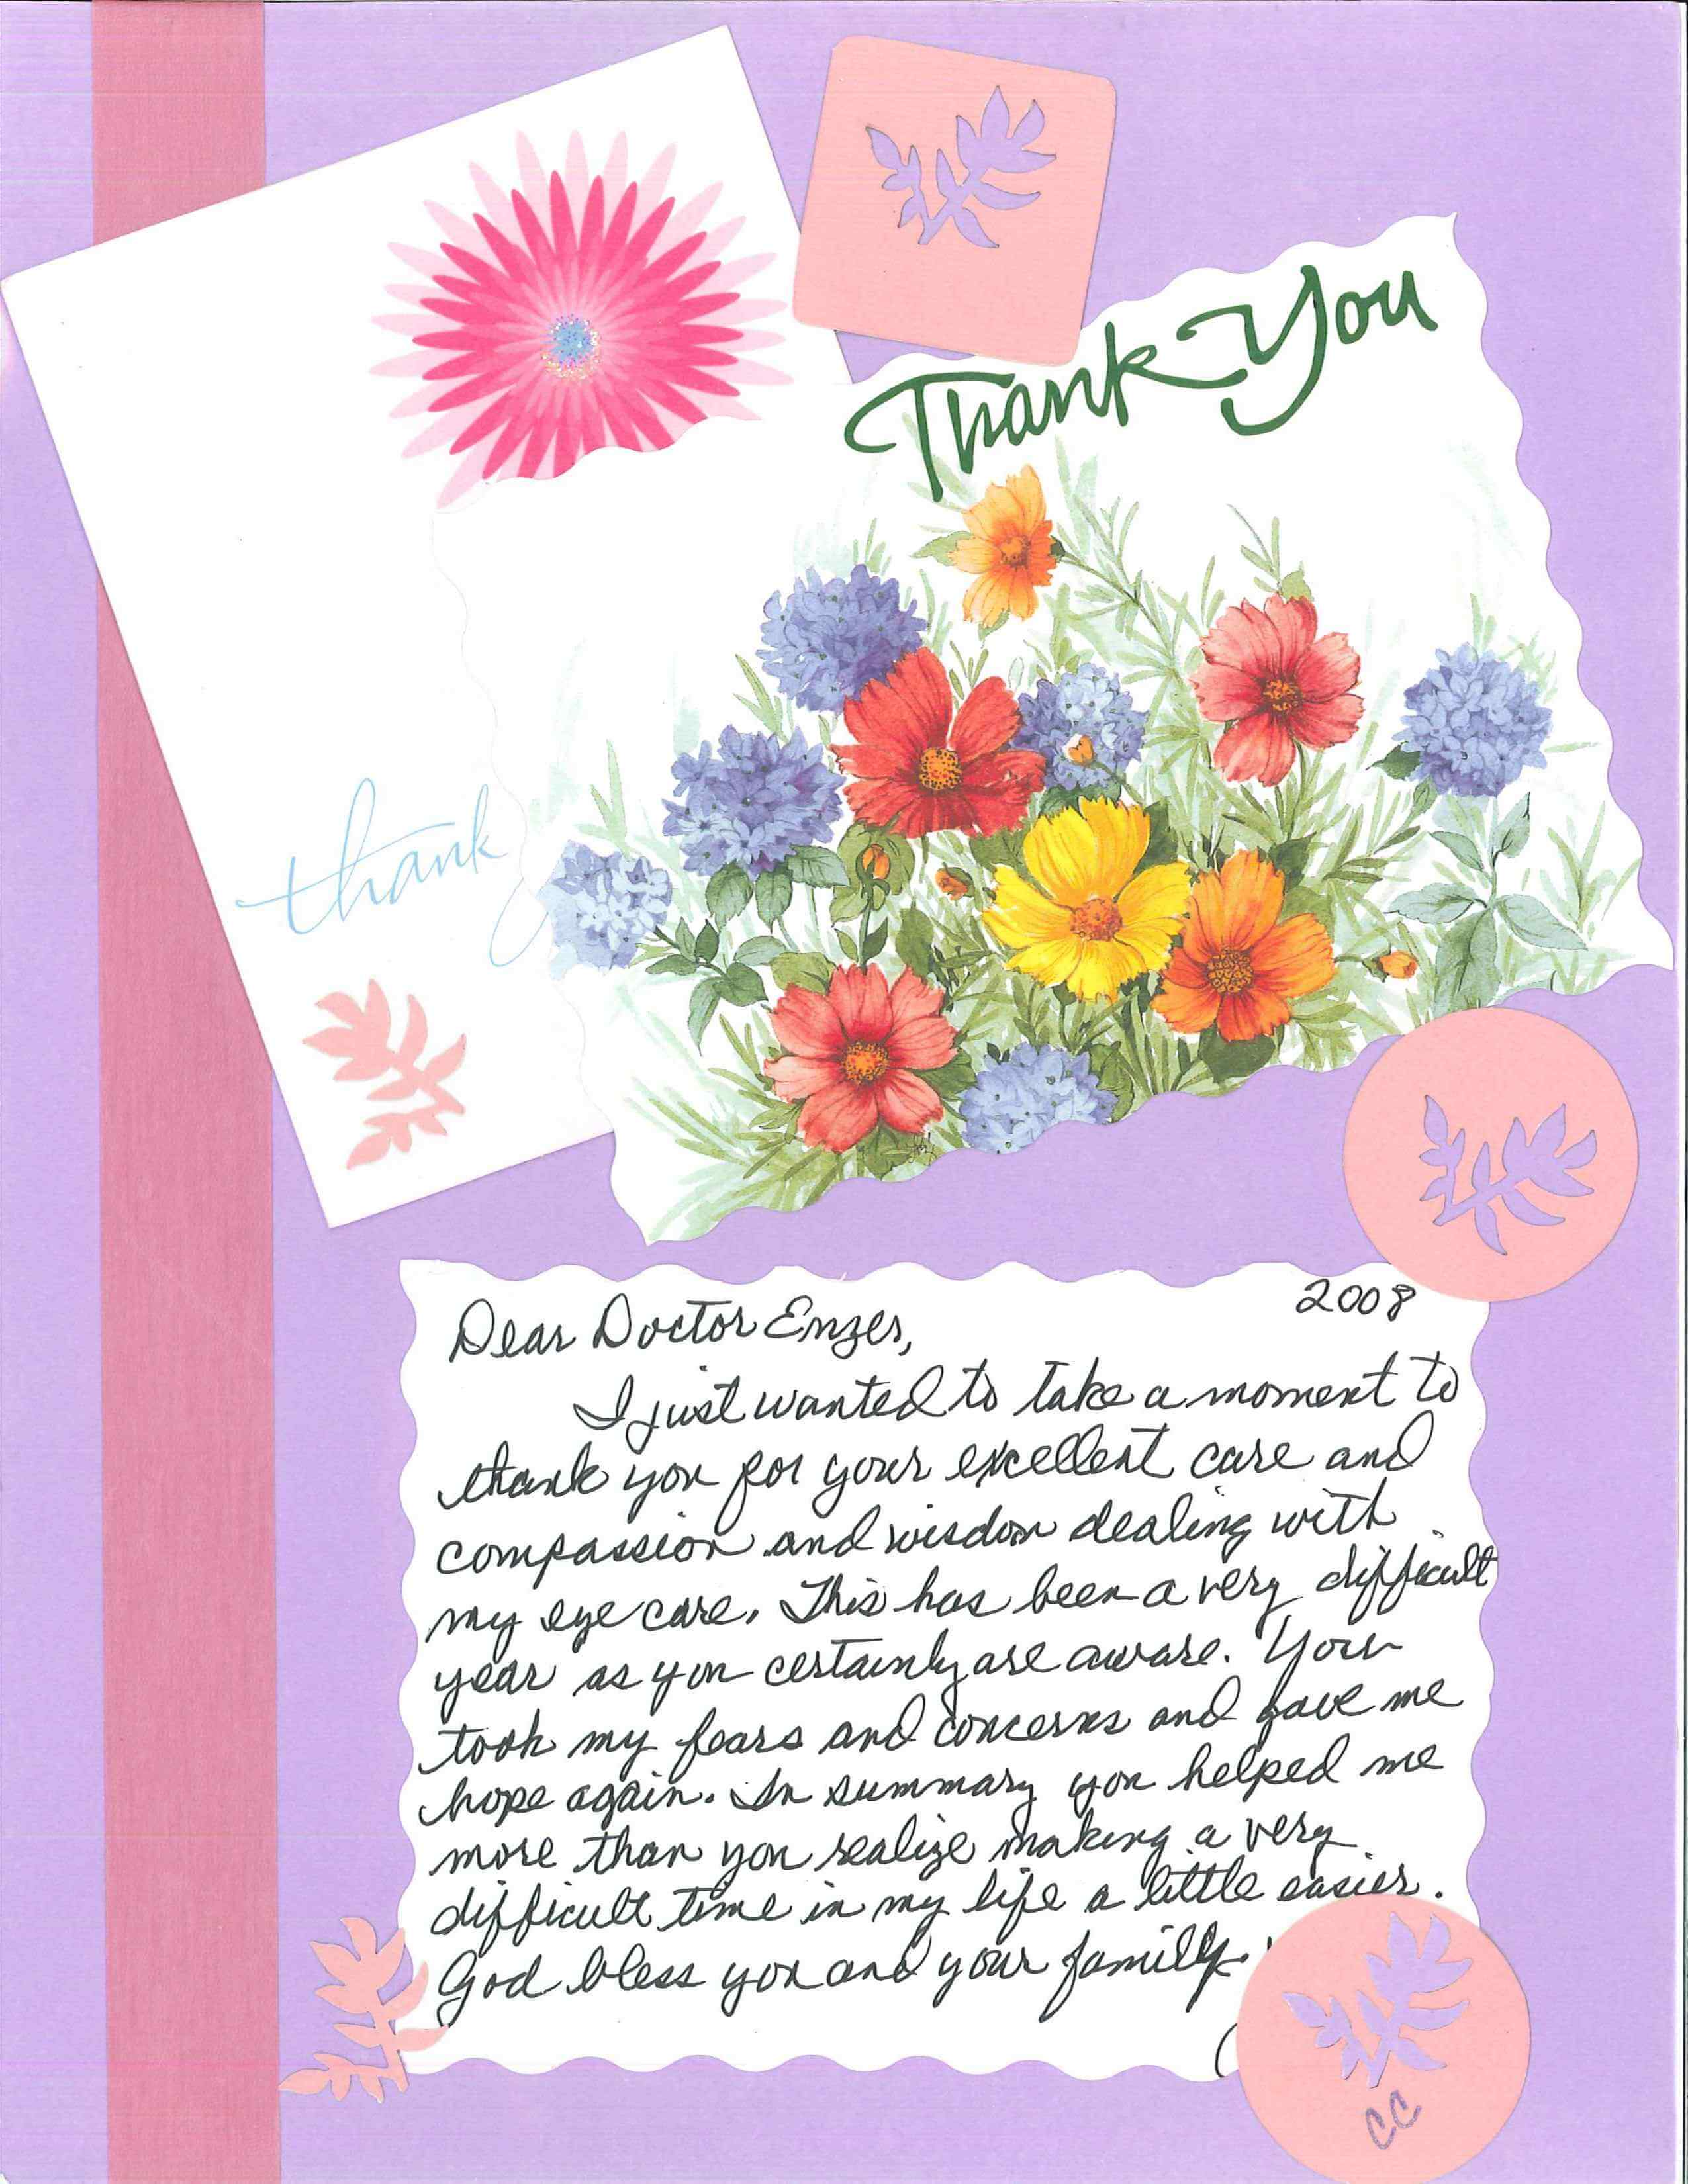 Thank You
thank
2008
Dear Doctor Enzer,
I just wanted to take a moment to
thank you for your excellent care and
compassion and wisdom dealing with
my eye care. This has been a very difficult
year as you certainly are aware. You
took my fears and concerns and gave me
hope again. In summary you helped me
more than you realize making a very
difficult time in my life a little easier.
God bless you and your family.
CC